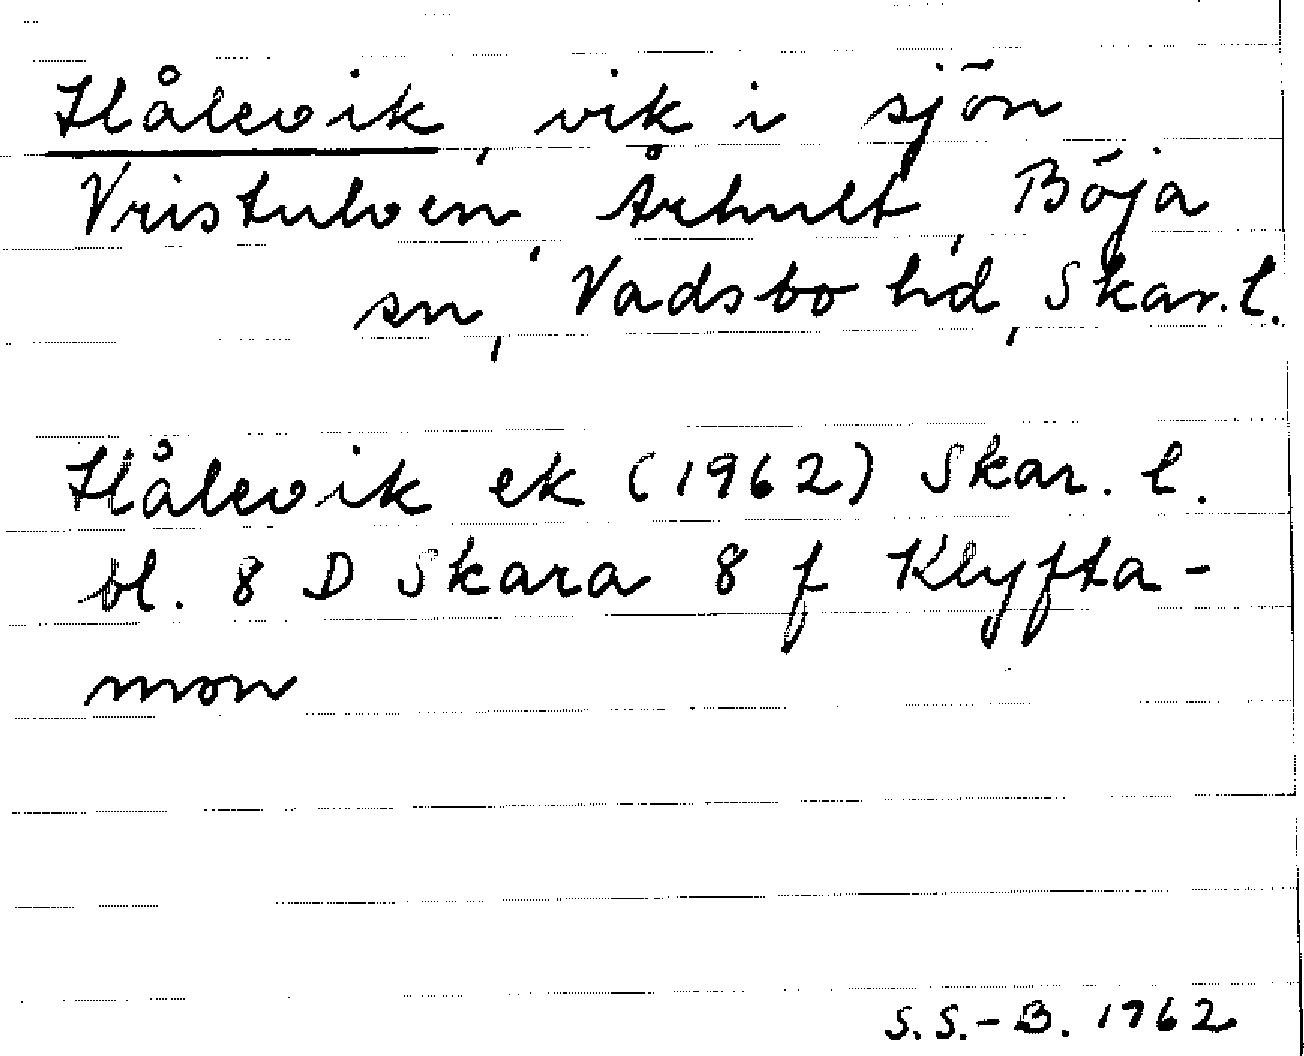 Hålevik, vik i sjön
Vristulven, Århult, Böja
sn, Vadsbo hd, Skar. l.
Hålevik ek (1962) Skar. l.
bl. 8 D Skara 8 f Klyfta-
mon
S.S.-B. 1962